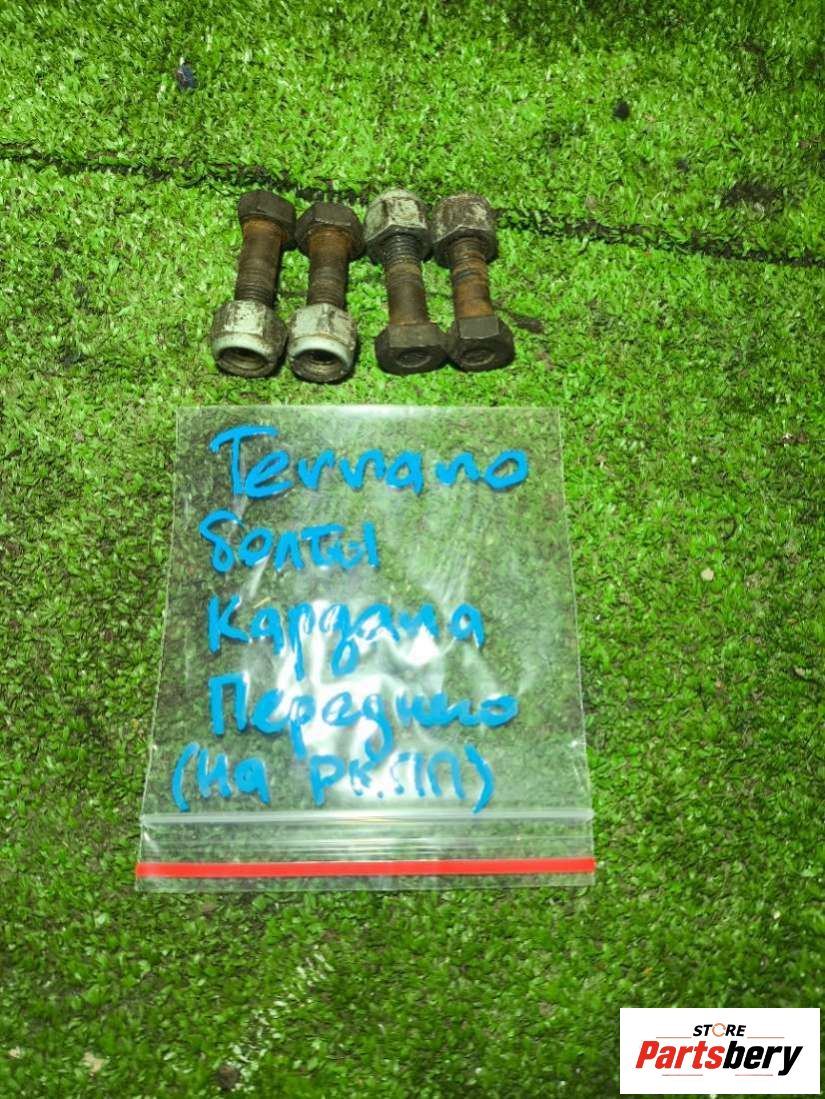 Terrano
болты
Кардана
Переднего
(на РК.ПП)
STORE
Partsbery